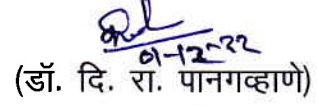 01-12-22
(डॉ. दि. रा. पानगव्हाणे)